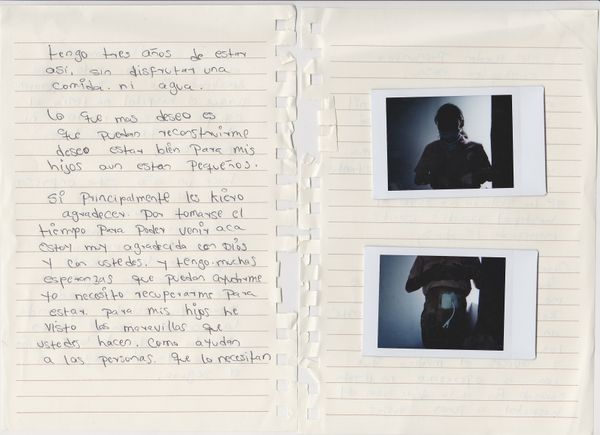 tengo tres años de estar
así, sin disfrutar una
comida. ni agua.
Lo que mas deseo es
que puedan reconstruirme
deseo estar bien para mis
hijos aun estan pequeños.
Si principalmente les kiero
agradecer. Por tomarse el
tiempo para poder venir aca
estoy muy agradecida con Dios
y con ustedes. y tengo muchas
esperanzas que puedan ayudarme
yo necesito recuperarme para
estar para mis hijos he
visto las maravillas que
ustedes hacen. Como ayudan
a las personas. que lo necesitan